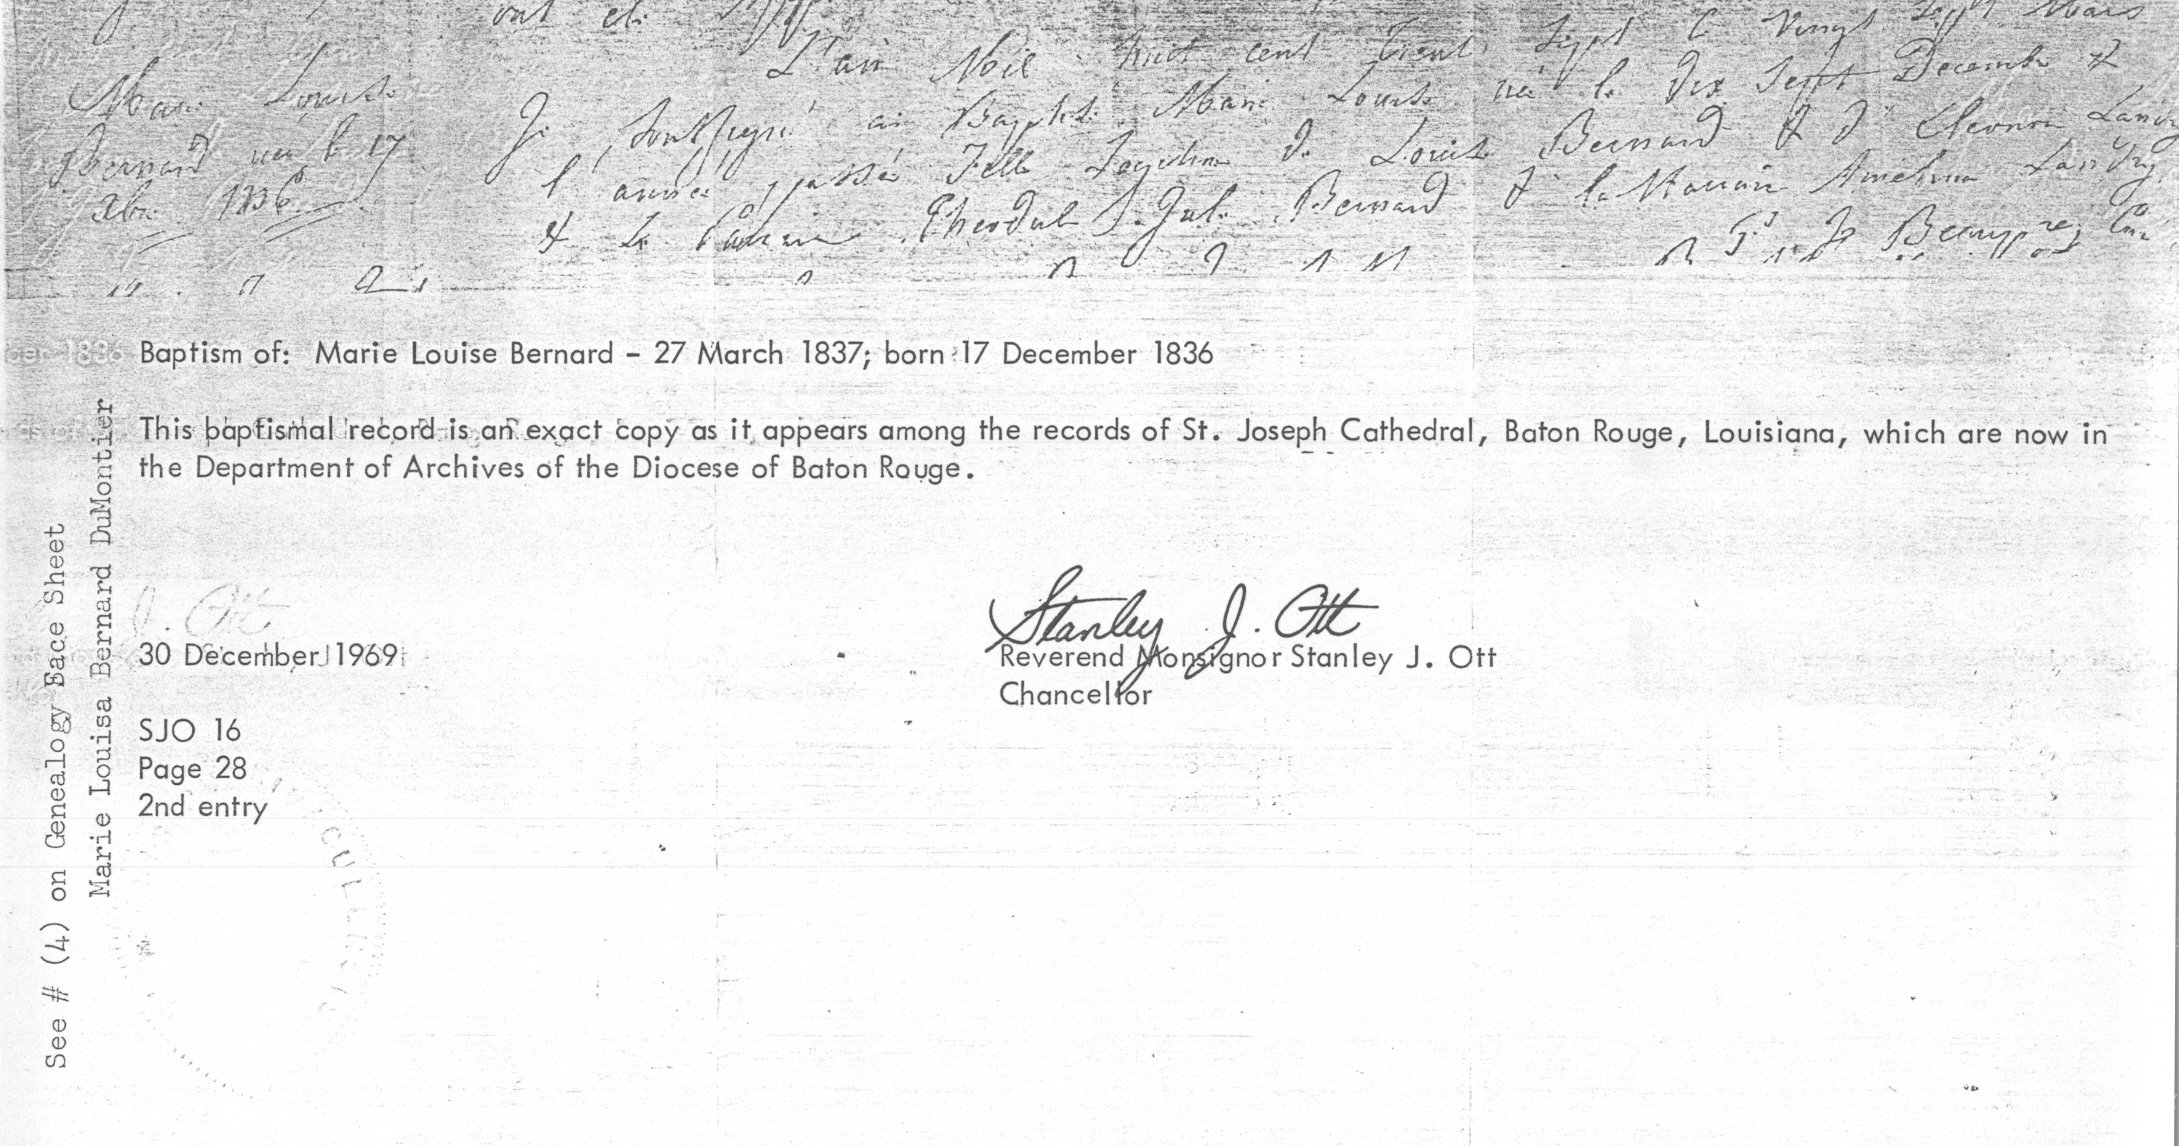 L'an Mil huit cent trent sept & vingt sept Mars
Marie Louise
Bernard née le 17
Xbre 1836
Je soussigné ai Baptisé Marie Louise née le dix sept Decembre
l'année passée Fille Legitime de Louis Bernard & d' Eleonor Landry
& Le Parain Theodule Jule Bernard & la Maraine Landry
Baptism of: Marie Louise Bernard - 27 March 1837; born 17 December 1836
This baptismal record is an exact copy as it appears among the records of St. Joseph Cathedral, Baton Rouge, Louisiana, which are now in
the Department of Archives of the Diocese of Baton Rouge.
Stanley J. Ott
30 December 1969
Reverend Monsignor Stanley J. Ott
Chancellor
SJO 16
Page 28
2nd entry
See # (4) on Genealogy Bace Sheet
Marie Louisa Bernard DuMontier